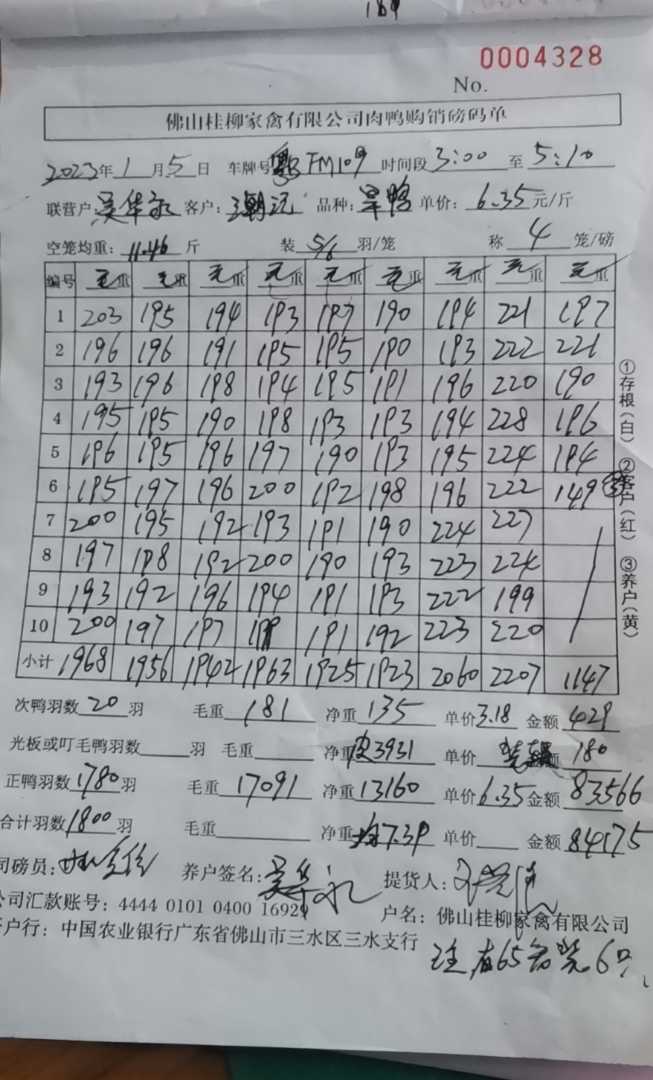 189
0004328
No.
佛山桂柳家禽有限公司肉鸭购销磅码单
2023年1月5日 车牌号粤FM109 时间段3:00至5:10
联营户:吴华 客户: 品种:旱鸭 单价:6.35元/斤
空笼均重:11.46斤 装5/6羽/笼 称4笼/磅
编号 毛重 毛重 毛重 毛重 毛重 毛重 毛重 毛重 毛重
1 203 195 194 193 197 190 194 221 197
2 196 196 191 195 195 190 193 222 221
3 193 196 198 194 195 191 196 220 190
4 195 195 190 198 193 193 194 228 196
5 196 195 196 197 190 193 195 224 194
6 195 197 196 200 192 198 196 222 149
7 200 195 192 193 191 190 224 227
8 197 198 192 200 190 193 223 224
9 193 192 196 194 191 193 222 199
10 200 197 197 199 191 192 223 220
小计 1968 1956 1942 1963 1925 1923 2060 2207 1147
①存根(白) ②客户(红) ③养户(黄)
次鸭羽数20羽 毛重181 净重135 单价3.18 金额429
光板或叮毛鸭羽数 羽 毛重 净重皮3931 单价 金额180
正鸭羽数1780羽 毛重17091 净重13160 单价6.35 金额83566
合计羽数1800羽 毛重 净重均7.39 单价 金额84175
司磅员: 养户签名:吴华 提货人:
公司汇款账号:4444 0101 0400 16929 户名:佛山桂柳家禽有限公司
开户行:中国农业银行广东省佛山市三水区三水支行
注有65笼装6只